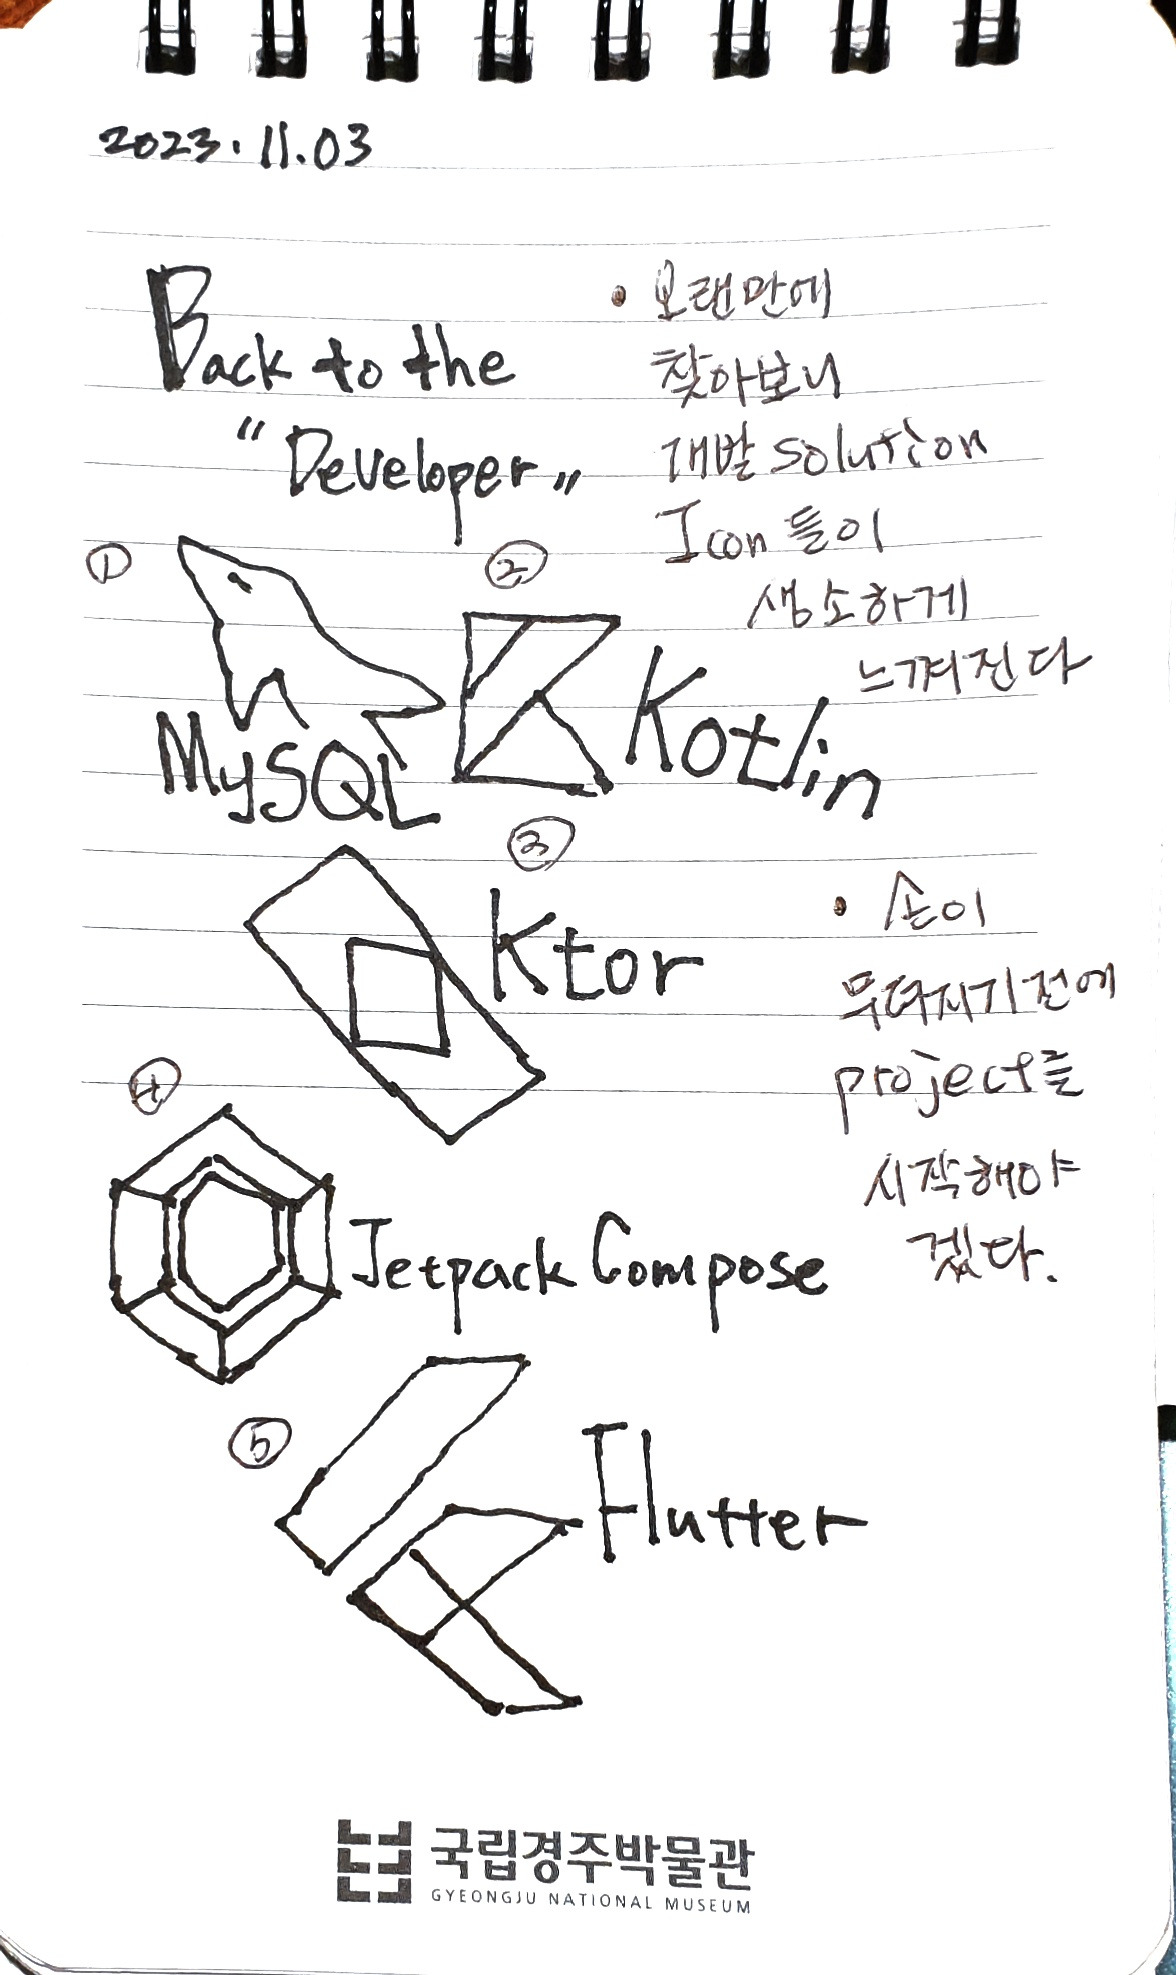 2023.11.03
Back to the
"Developer"
• 오랜만에
찾아보니
개발 solution
Icon들이
생소하게
느껴진다
①
MySQL
②
Kotlin
③
Ktor
• 손이
무뎌지기전에
project를
시작해야
겠다.
④
Jetpack Compose
⑤
Flutter
국립경주박물관
GYEONGJU NATIONAL MUSEUM